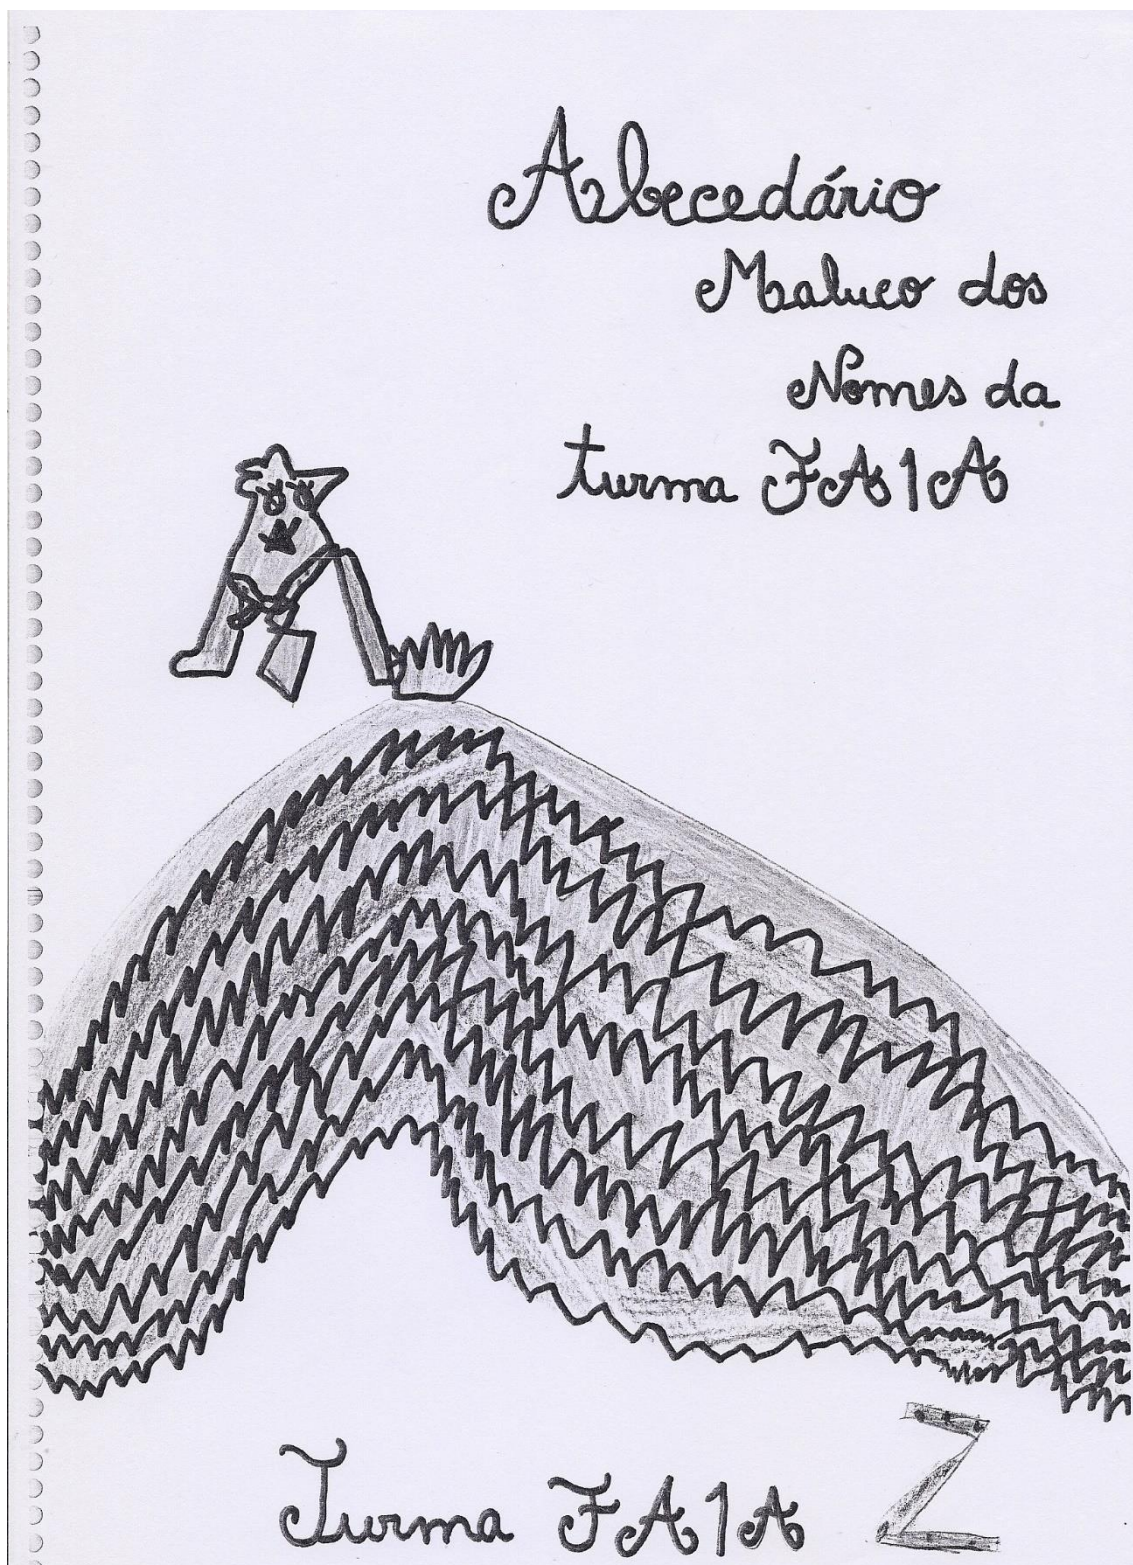 Abecedário
Maluco dos
Nomes da
turma FA1A
Turma FA1A Z